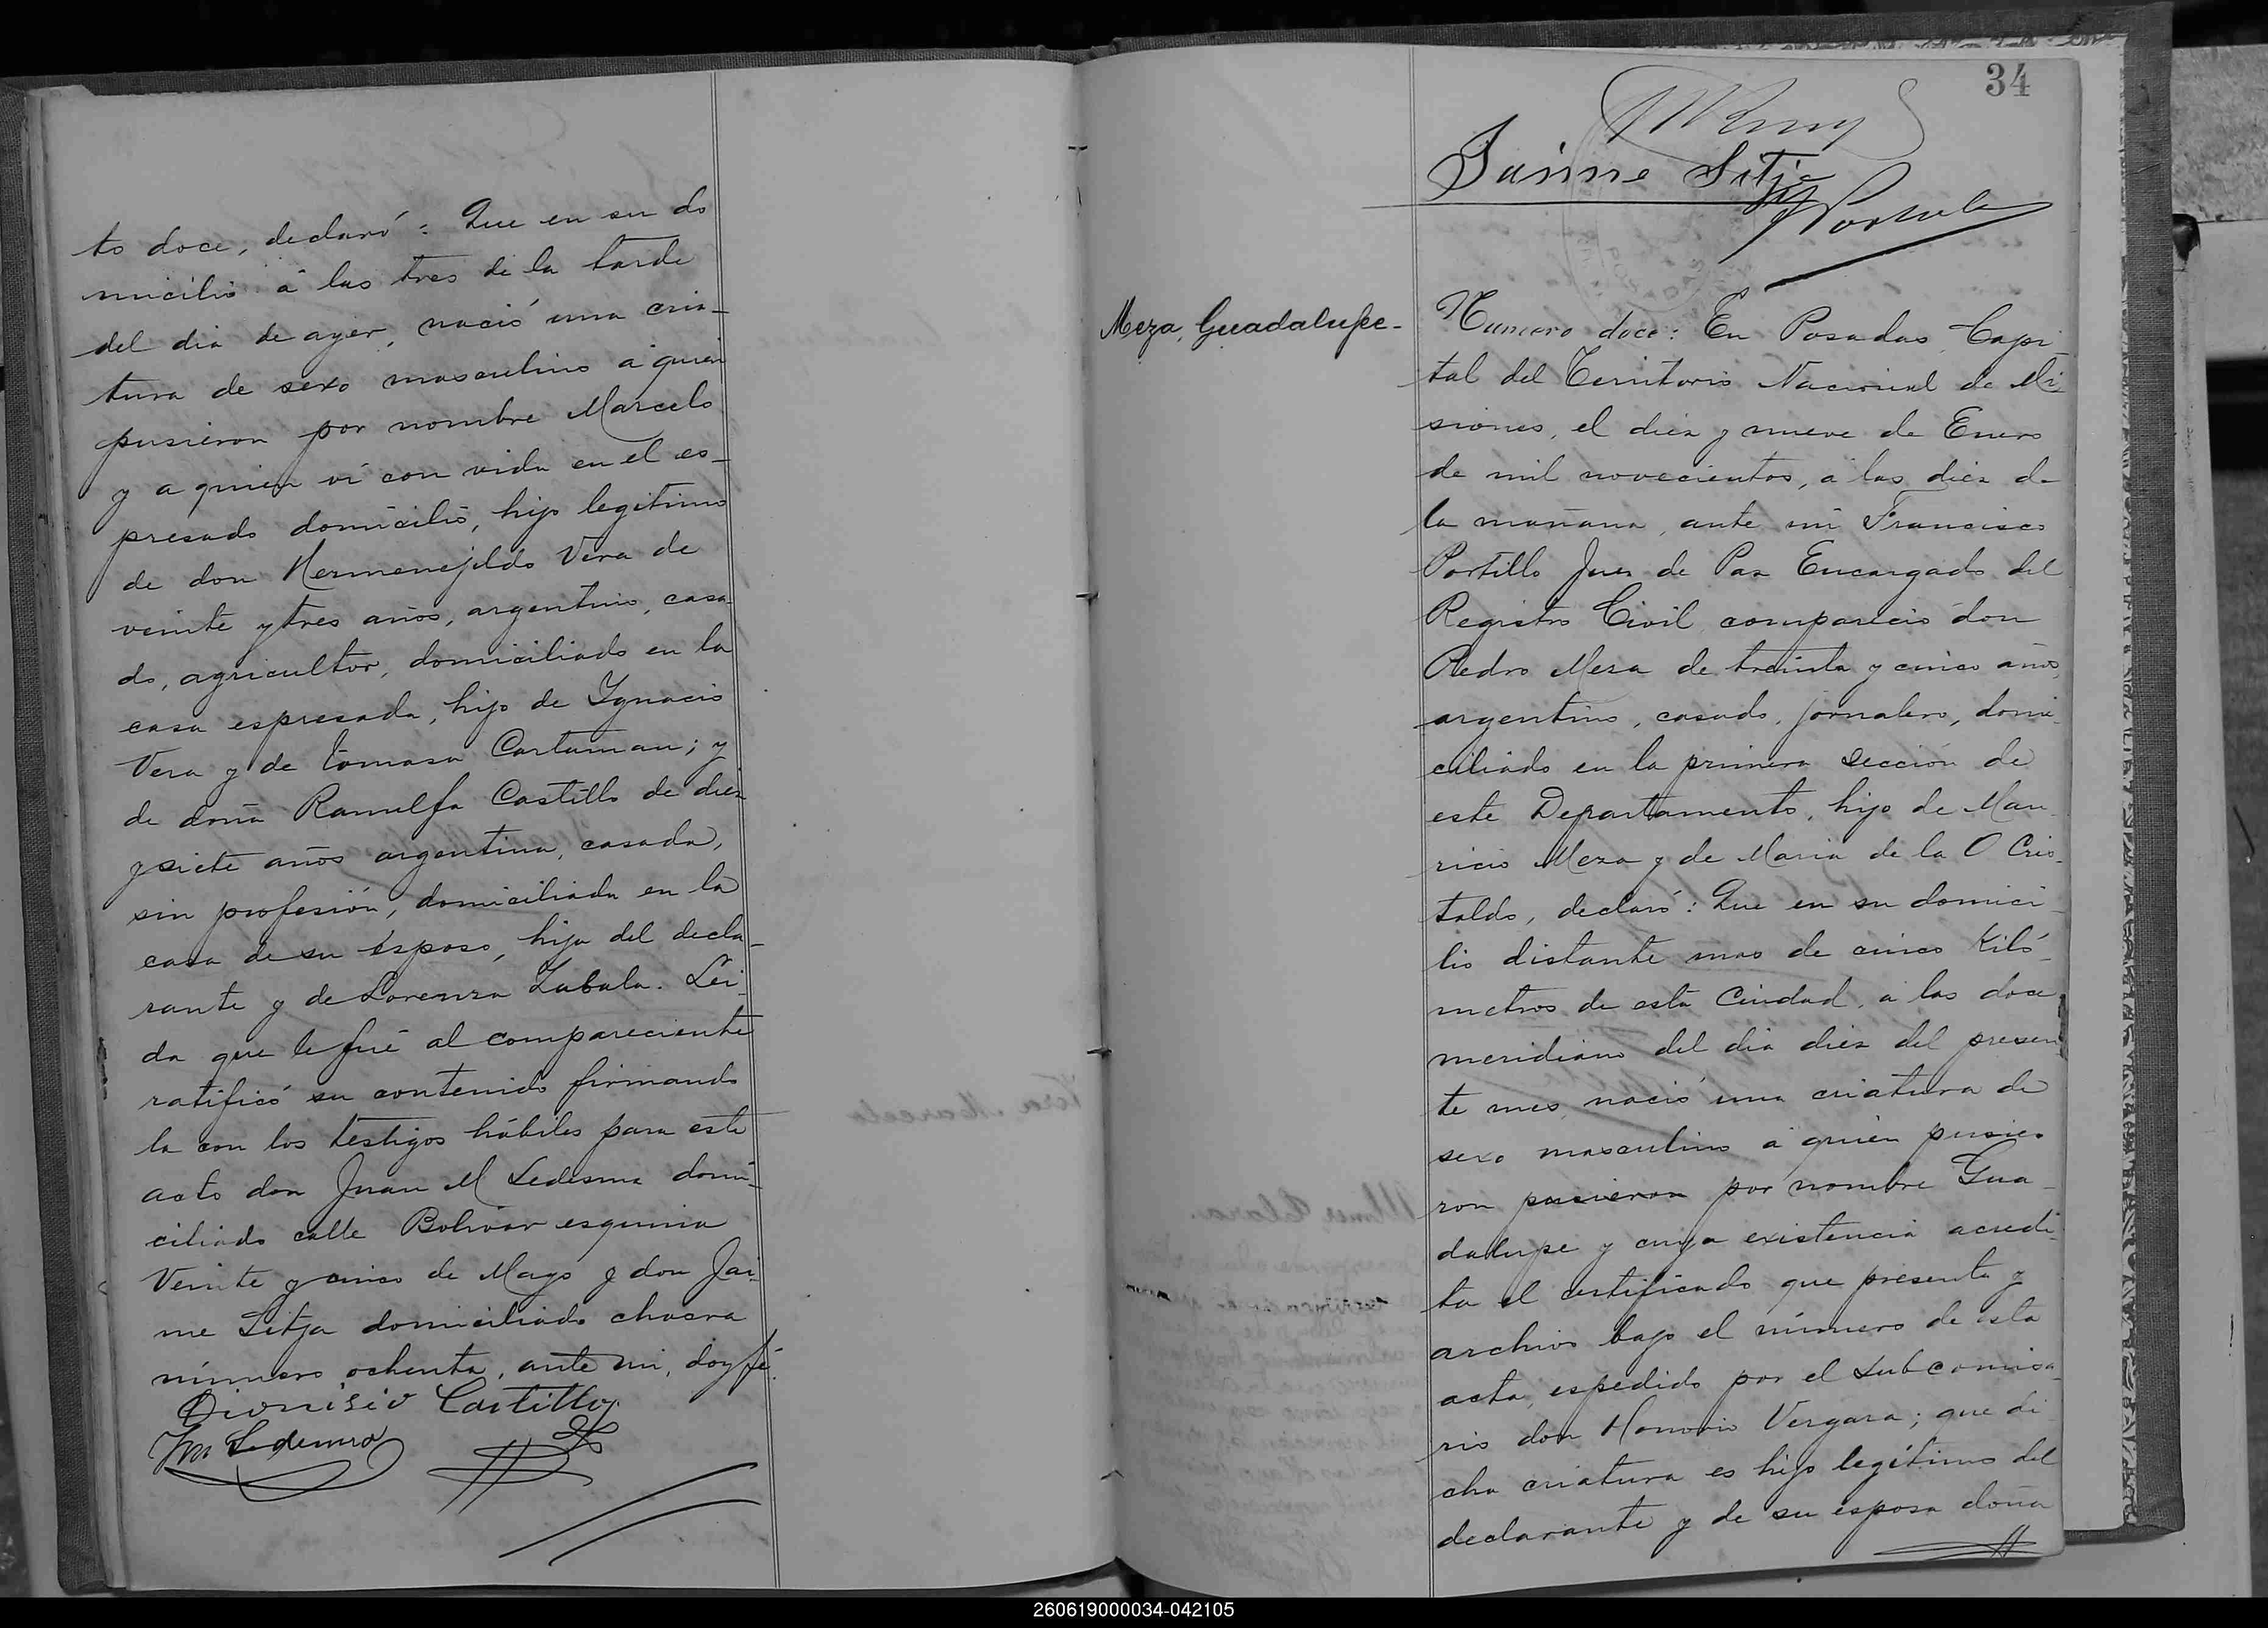 to doce, declaró: Que en su do
micilio á las tres de la tarde
del dia de ayer, nació una cria-
tura de sexo masculino á quien
pusieron por nombre Marcelo
y a quien ví con vida en el es-
presado domicilio, hijo legítimo
de don Hermenejildo Vera de
veinte y tres años, argentino, casa
do, agricultor, domiciliado en la
casa espresada, hijo de Ygnacio
Vera y de Tomasa Cartaman; y
de doña Ranulfa Castillo de diez
y siete años argentina, casada,
sin profesión, domiciliada en la
casa de su esposo, hija del decla-
rante y de Lorenza Zabala. Lei-
da que le fué al compareciente
ratificó su contenido firmando
la con los testigos hábiles para este
acto don Juan M Ledesma domi-
ciliado calle Bolivar esquina
Veinte y cinco de Mayo y don Jai-
me Sitja domiciliado chacra
número ochenta, ante mi, doy fé.
Dionisio Castillo
Jm Ledesma
34
Jaime Sitja
F Portillo
Meza, Guadalupe-
Numero doce: En Posadas, Capi
tal del Territorio Nacional de Mi-
siones, el diez y nueve de Enero
de mil novecientos, á las diez de
la mañana, ante mi Francisco
Portillo Juez de Paz Encargado del
Registro Civil compareció don
Pedro Meza de treinta y cinco años,
argentino, casado, jornalero, domi-
ciliado en la primera sección de
este Departamento, hijo de Mau-
ricio Meza y de Maria de la O Cris-
taldo, declaró: Que en su domici-
lio distante mas de cinco Kiló-
metros de esta Ciudad, á las doce
meridiano del dia diez del presen
te mes, nació una criatura de
sexo masculino á quien pusie
ron pusieron por nombre Gua-
dalupe y cuya existencia acredi-
ta el certificado que presenta y
archivo bajo el número de esta
acta, espedido por el Subcomisa-
rio don Honorio Vergara; que di
cha criatura es hijo legítimo del
declarante y de su esposa doña
260619000034-042105